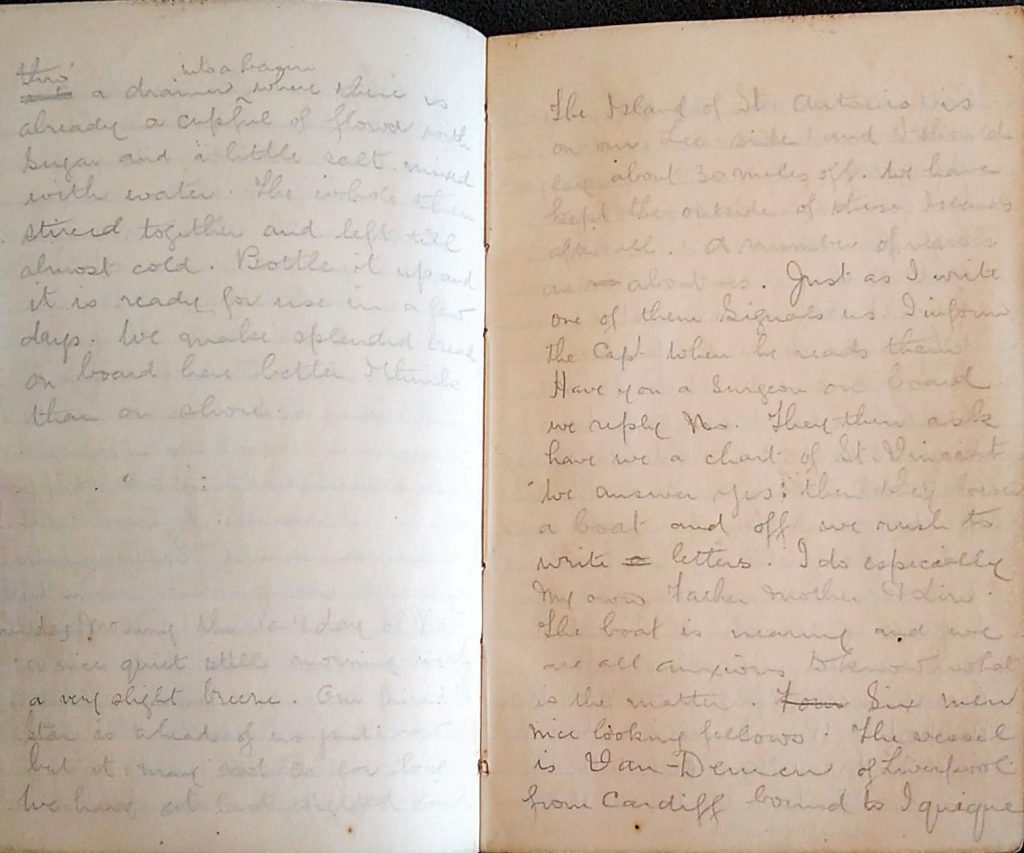 thro'
into a basin
a drainer where there is
already a cupful of flour with
Sugar and a little salt mixed
with water. The whole then
stired together and left till
almost cold. Bottle it up and
it is ready for use in a few
days. We make splendid bread
on board here better I think
than on shore.
morning the day of
a nice quiet still morning with
a very slight breeze. Our friend
star is ahead of us just now
but it may not be for long
We have at last sighted land
The Island of St. Antonio is
on our Lee side and I should
say about 30 miles off. We have
kept the outside of these Islands
after all. A number of vessels
are about us. Just as I write
one of them Signals us I inform
the Capt. When he reads them
Have you a Surgeon on board
we reply No. They then ask
have we a chart of St. Vincent
We answer yes: then they lower
a boat and off we rush to
write letters. I do especially
My own Father Mother
The boat is nearing and we
are all anxious to know what
is the matter. Four Six men
nice looking fellows. The vessel
is Van-Demen of Liverpool
from Cardiff bound to Iquique